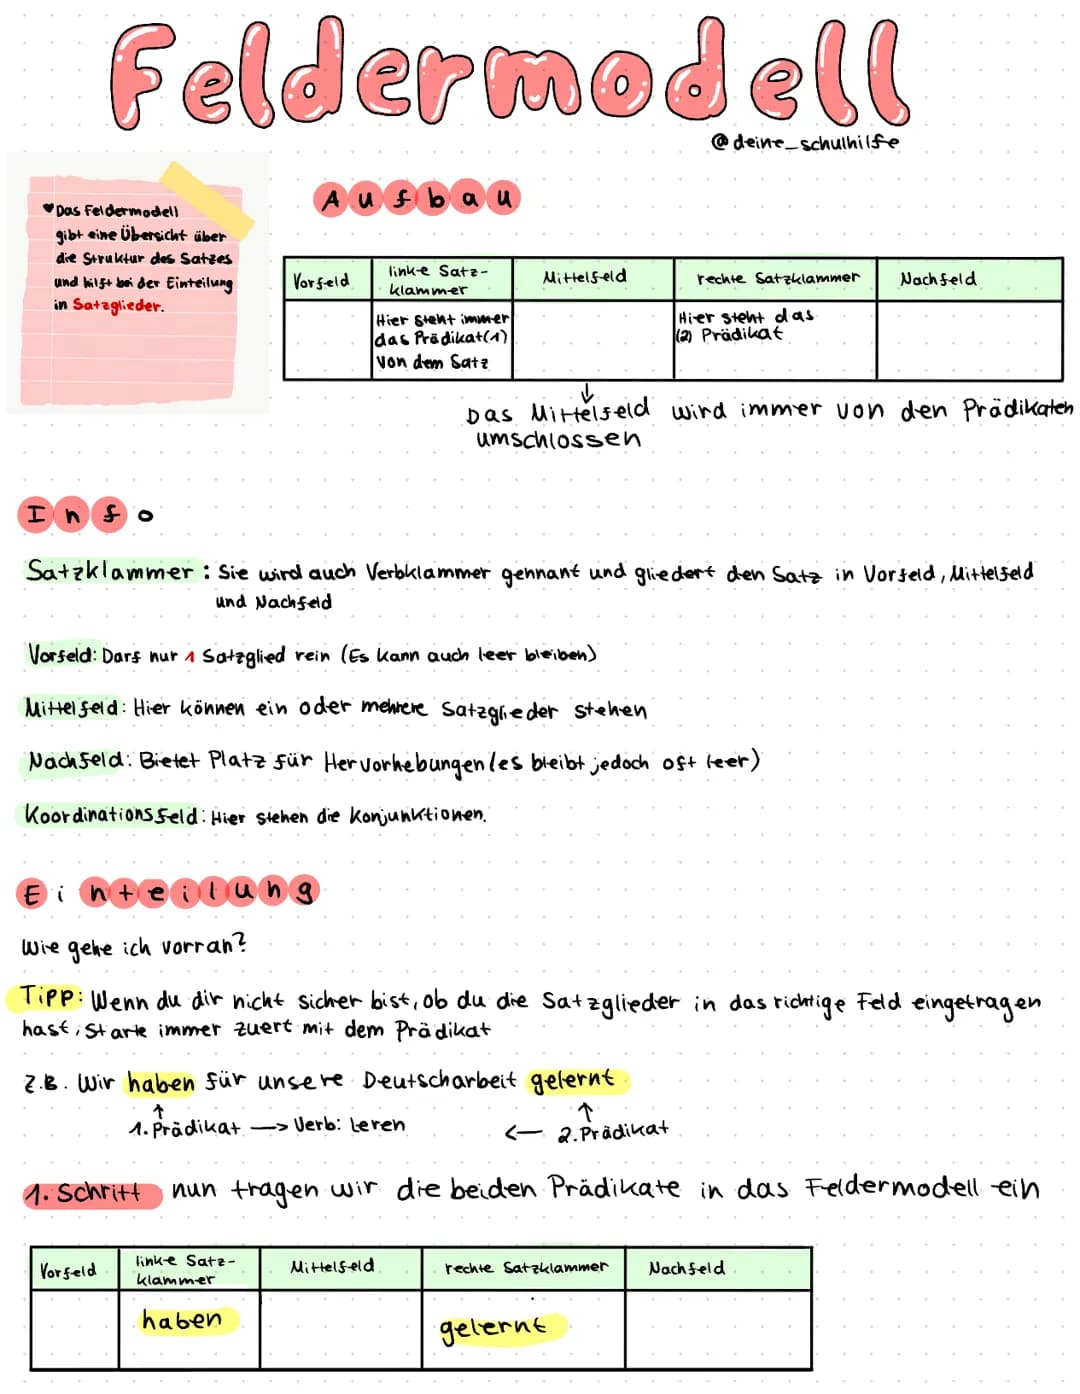 Feldermodell
@deine_schulhilfe
♥Das Feldermodell
gibt eine Übersicht über
die Struktur des Satzes
und hilft bei der Einteilung
in Satzglieder.
Aufbau
Vorfeld
linke Satz-
klammer
Mittelfeld
rechte Satzklammer
Nachfeld
Hier steht immer
das Prädikat(1)
von dem Satz
Hier steht das
(2) Prädikat
↓
Das Mittelfeld wird immer von den Prädikaten
umschlossen
Info
Satzklammer: Sie wird auch Verbklammer gennant und gliedert den Satz in Vorfeld, Mittelfeld
und Nachfeld
Vorfeld: Darf nur 1 Satzglied rein (Es kann auch leer bleiben)
Mittelfeld: Hier können ein oder mehrere Satzglieder stehen
Nachfeld: Bietet Platz für Hervorhebungen(es bleibt jedoch oft leer)
Koordinationsfeld: Hier stehen die Konjunktionen.
Einteilung
Wie gehe ich vorran?
Tipp: Wenn du dir nicht sicher bist, ob du die Satzglieder in das richtige Feld eingetragen
hast, starte immer zuert mit dem Prädikat
z.B. Wir haben für unsere Deutscharbeit gelernt
↑ ↑
1. Prädikat —> Verb: leren <— 2. Prädikat
1. Schritt nun tragen wir die beiden Prädikate in das Feldermodell ein
Vorfeld
linke Satz-
klammer
Mittelfeld
rechte Satzklammer
Nachfeld
haben
gelernt